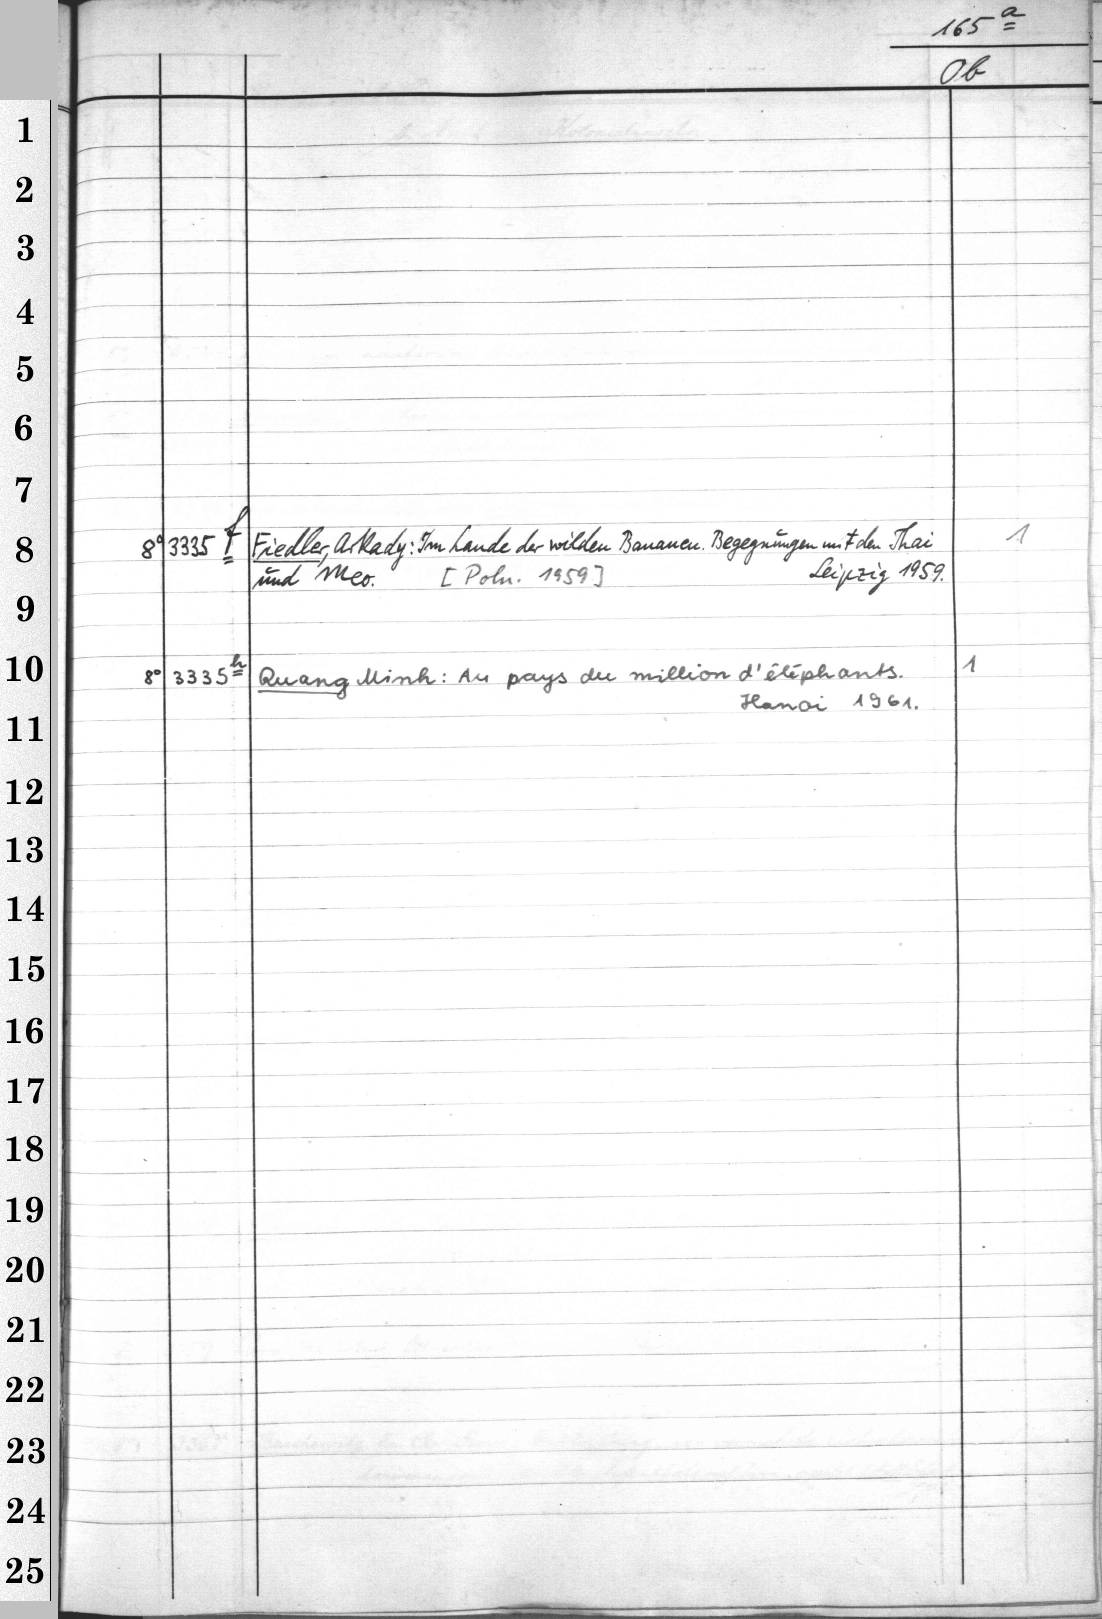 165 a
Ob
1
2
3
4
5
6
7
8
8° 3335 f Fiedler, Arkady: Im Lande der wilden Bananen. Begegnungen mit den Thai 1
und Meo. [Poln. 1959] Leipzig 1959.
9
10
8° 3335 h Quang Minh: Au pays du million d'éléphants. 1
Hanoi 1961.
11
12
13
14
15
16
17
18
19
20
21
22
23
24
25